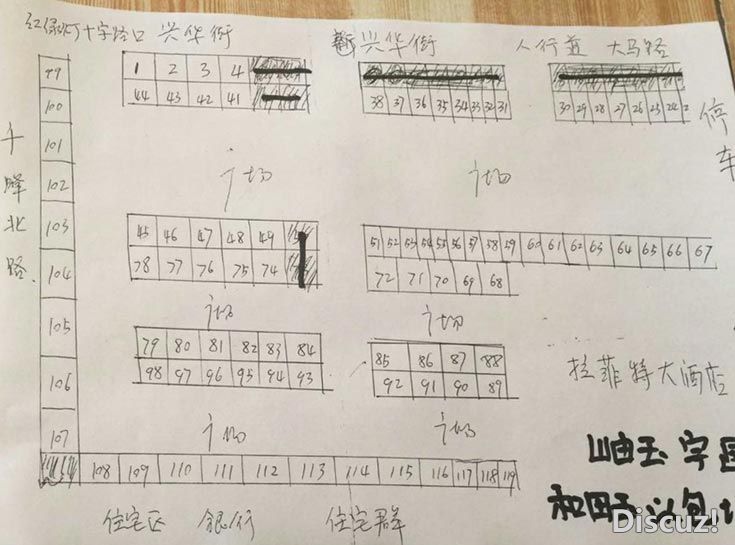 红绿灯十字路口 兴华街 新兴华街 人行道 大马路
1 2 3 4
44 43 42 41
38 37 36 35 34 33 32 31
30 29 28 27 26 25 24
停车
千峰北路
99
100
101
102
103
104
105
106
107
广场 广场
45 46 47 48 49
78 77 76 75 74
51 52 53 54 55 56 57 58 59 60 61 62 63 64 65 66 67
72 71 70 69 68
广场 广场
79 80 81 82 83 84
98 97 96 95 94 93
85 86 87 88
92 91 90 89
拉菲特大酒店
广场 广场
108 109 110 111 112 113 114 115 116 117 118 119
住宅区 银行 住宅群
岫玉 字画
和田玉
Discuz!